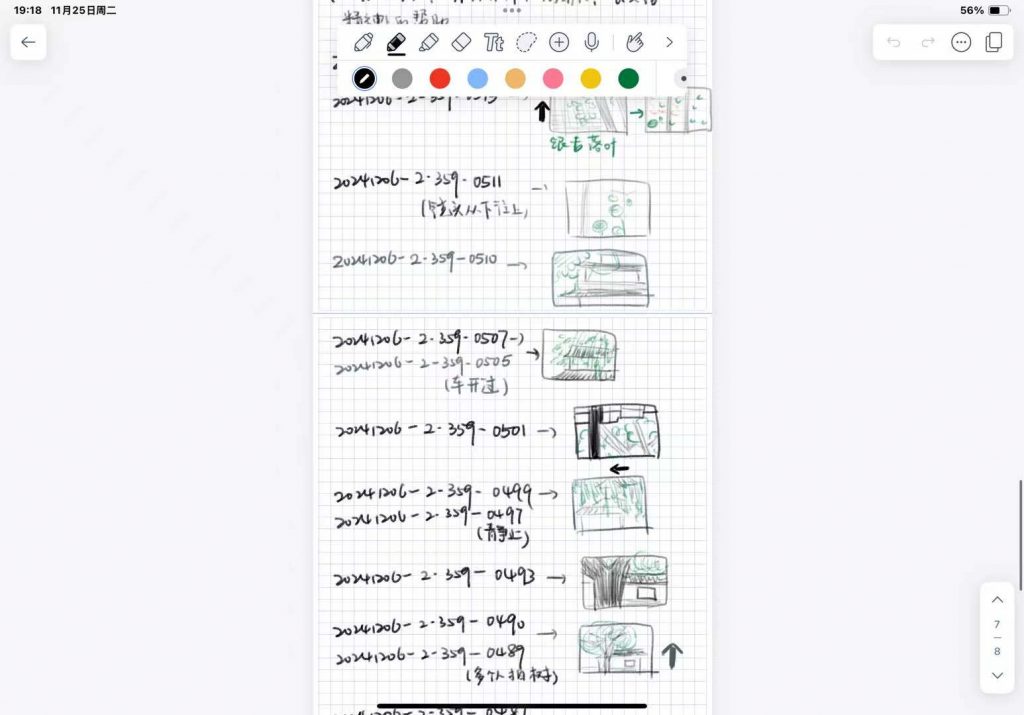 19:18 11月25日周二
56%
Tt
银杏落叶
20241206-2-359-0511
(镜头从下往上)
20241206-2-359-0510
20241206-2-359-0507
20241206-2-359-0505
(车开过)
20241206-2-359-0501
20241206-2-359-0499
20241206-2-359-0497
(静止)
20241206-2-359-0493
20241206-2-359-0490
20241206-2-359-0489
(多个人拍树)
7
8